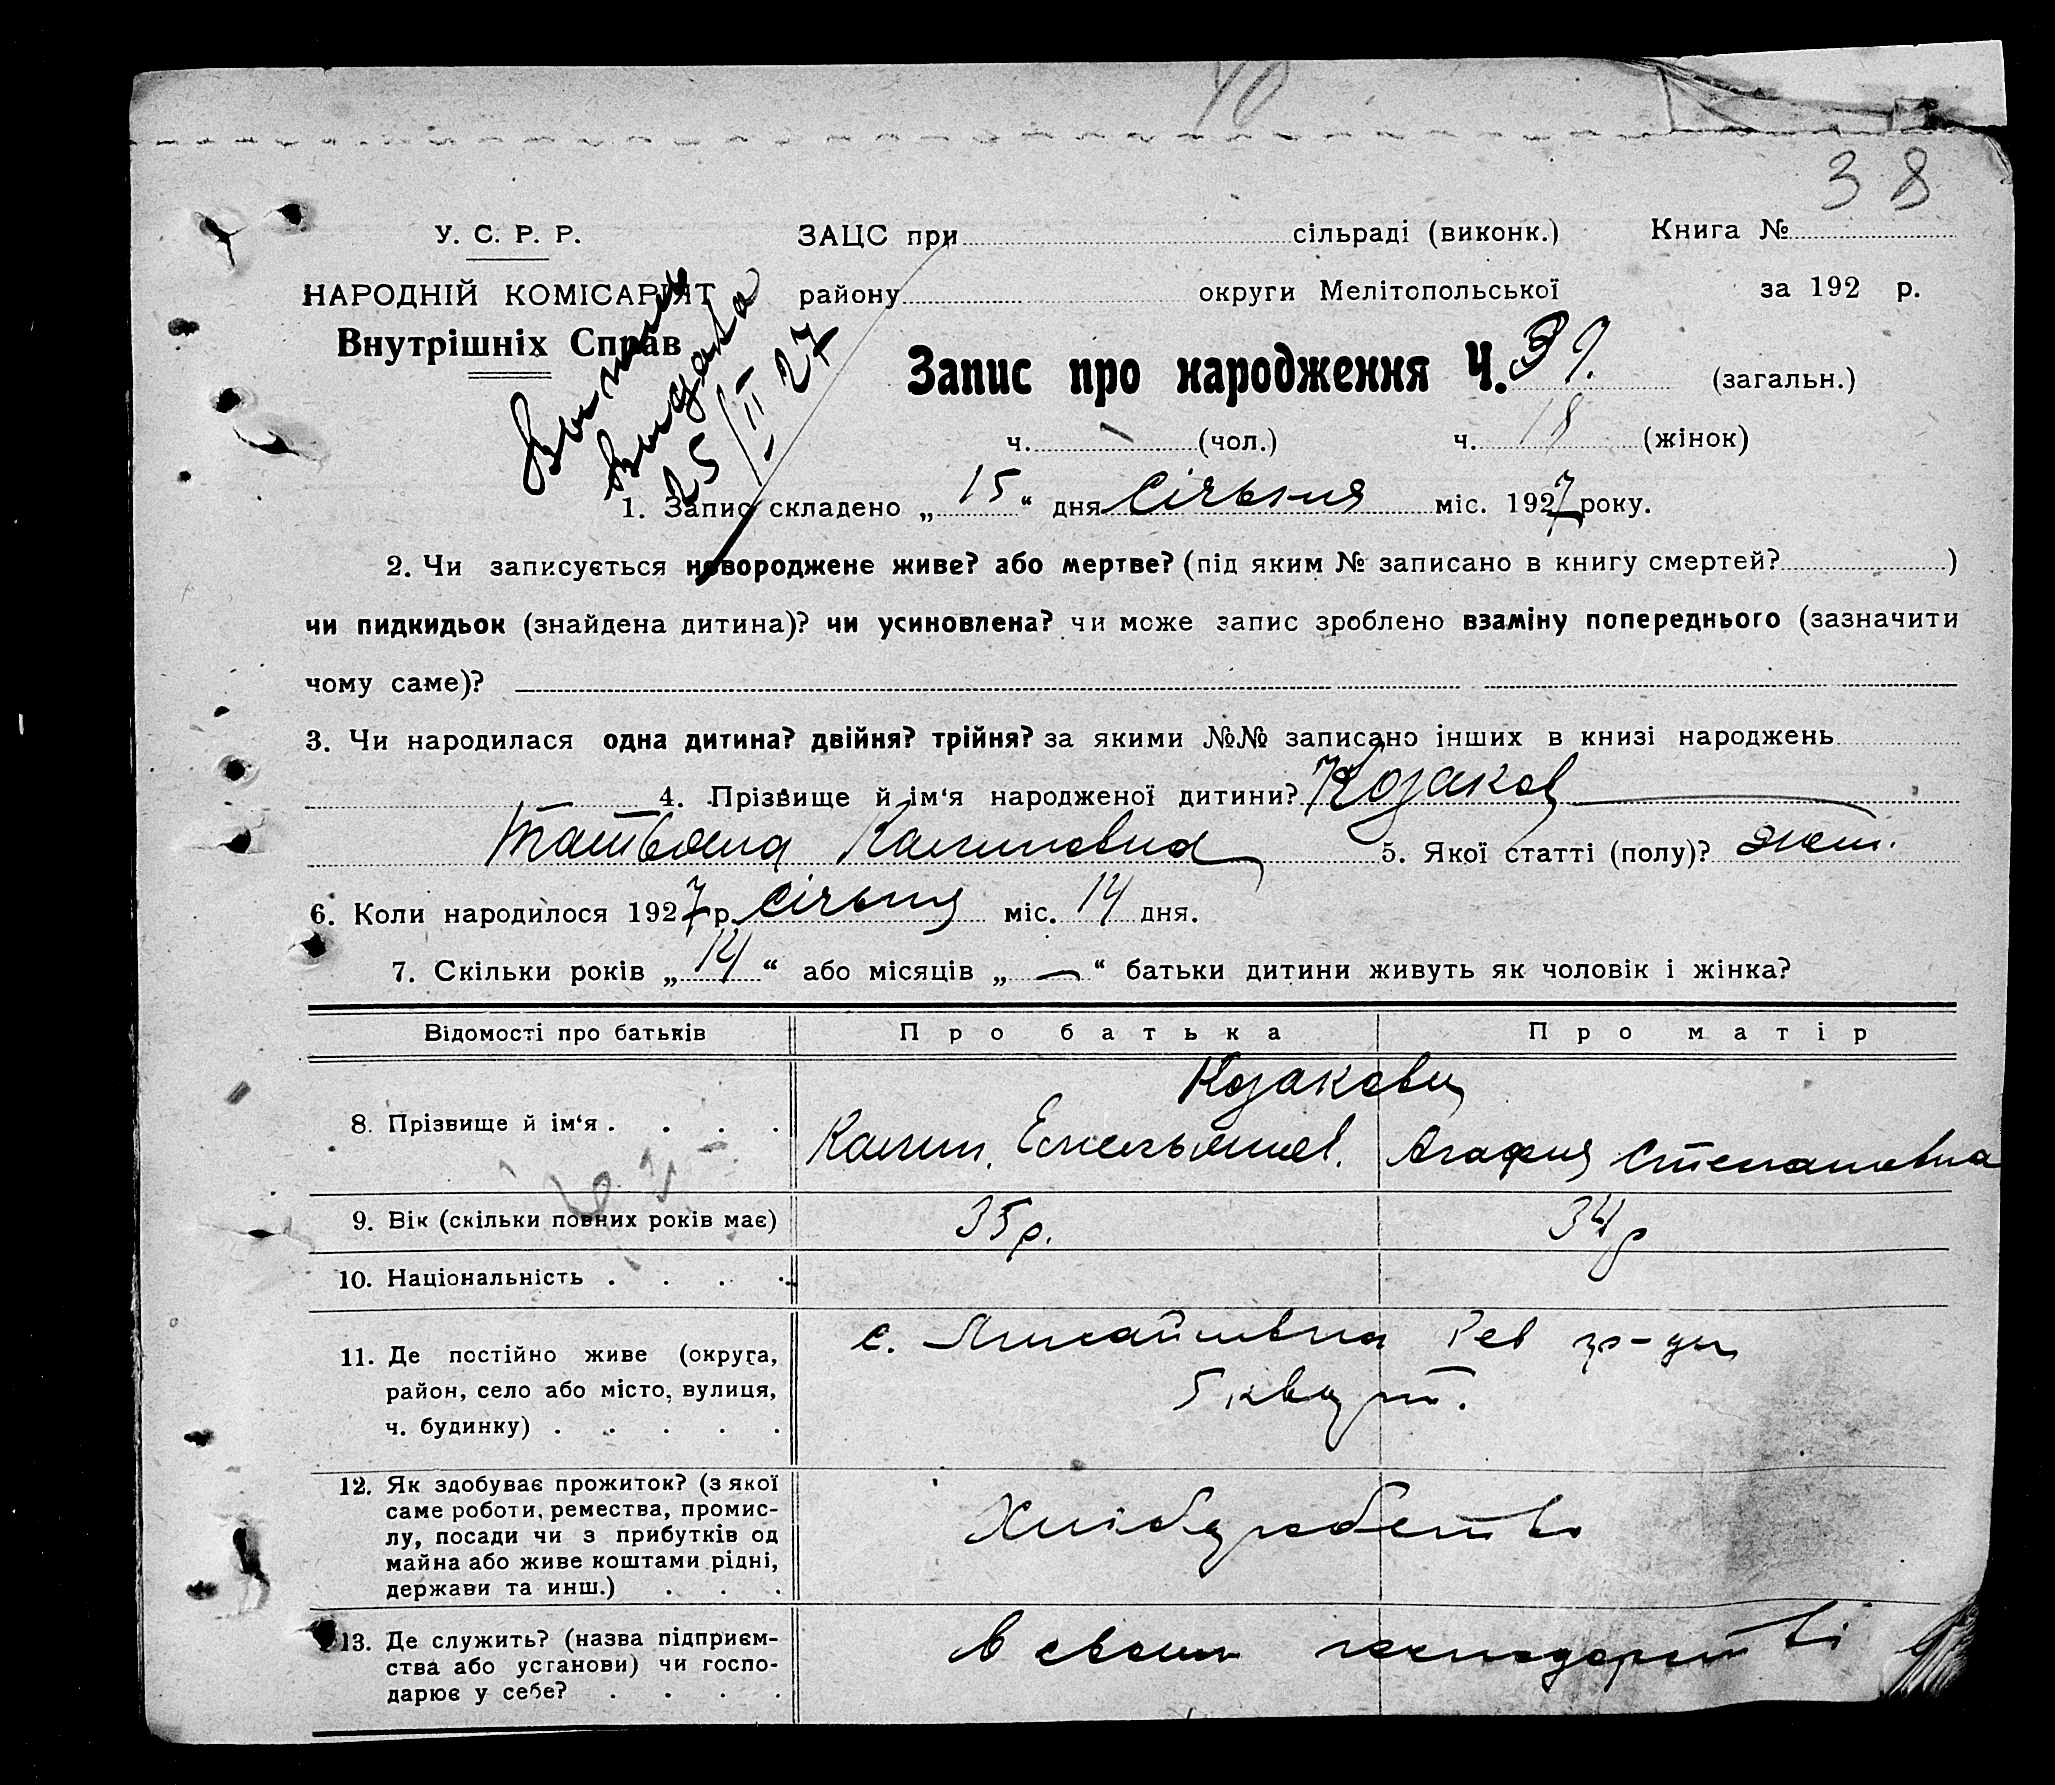 40
38
У. С. Р. Р.
ЗАЦС при сільраді (виконк.) Книга №
НАРОДНІЙ КОМІСАРІЯТ
району округи Мелітопольської за 192 р.
Внутрішніх Справ
Выпись
выдана
25/II 27
Запис про народження Ч. 39. (загальн.)
ч. — (чол.) ч. 18 (жінок)
1. Запис складено „ 15 “ дня Січьня міс. 1927 року.
2. Чи записується новороджене живе? або мертве? (під яким № записано в книгу смертей? )
чи пидкидьок (знайдена дитина)? чи усиновлена? чи може запис зроблено взаміну попереднього (зазначити
чому саме)?
3. Чи народилася одна дитина? двійня? трійня? за якими №№ записано інших в книзі народжень
4. Прізвище й ім‘я народженої дитини? Козаков
Татьяна Калиновна 5. Якої статті (полу)? жет.
6. Коли народилося 1927 р. Січьня міс. 14 дня.
7. Скільки років „ 14 “ або місяців „ — “ батьки дитини живуть як чоловік і жінка?
Відомості про батьків Про батька Про матір
Козакови
8. Прізвище й ім‘я . . . . Калин. Емельянов. Агафия Степановна
9. Вік (скільки повних років має) 35 р. 34 р
10. Національність . . . .
11. Де постійно живе (округа, с. Михайлівка Рев
район, село або місто, вулиця, 5 кварт.
ч. будинку) . . . . .
12. Як здобуває прожиток? (з якої
саме роботи, ремества, промис-
лу, посади чи з прибутків од Хліборобство
майна або живе коштами рідні,
держави та инш.) . . .
13. Де служить? (назва підприєм- в своим господарстві
ства або установи) чи госпо-
дарює у себе? . . . .